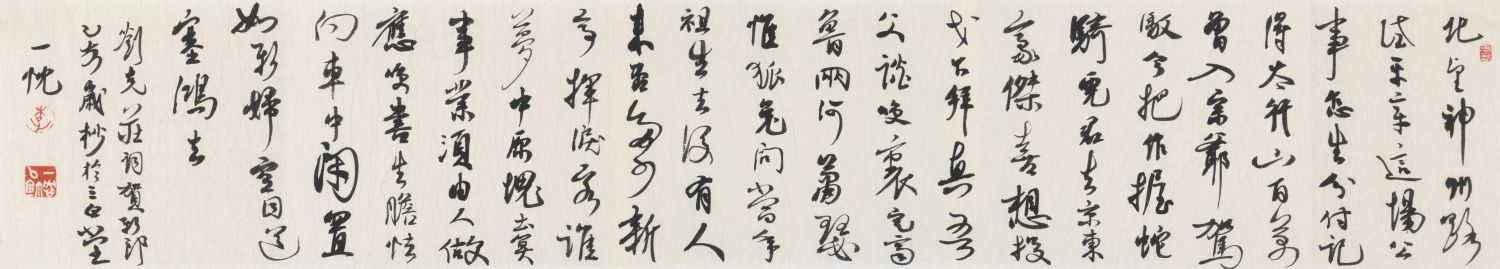 北望神州路
試平章這場公
事怎生分付記
得太行山百萬
曾入宗爺駕
馭今把作握蛇
騎虎君去京東
豪傑喜想投
戈下拜真吾
父談笑裏定齊
魯兩河蕭瑟
惟狐兔問當年
祖生去後有人
來否多少新
亭揮淚客誰
夢中原塊土算
事業須由人做
應笑書生膽怯
向車中閉置
如新婦空目送
塞鴻去
劉克莊詞賀新郎
歲杪於三堂
一忱
李